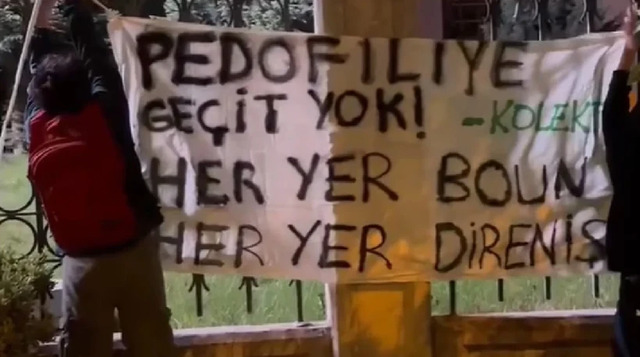 PEDOFİLİYE
GEÇİT YOK! -KOLEKT
HER YER BOUN
HER YER DİRENİŞ